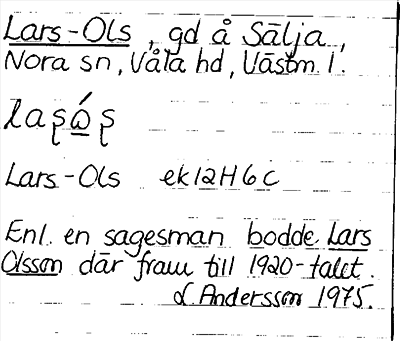 Lars-Ols, gd å Sälja,
Nora sn, Våla hd, Västm l.
laʂώʂ
Lars-Ols ek 12H6c
Enl. en sagesman bodde Lars
Olsson där fram till 1920-talet.
L. Andersson 1975.